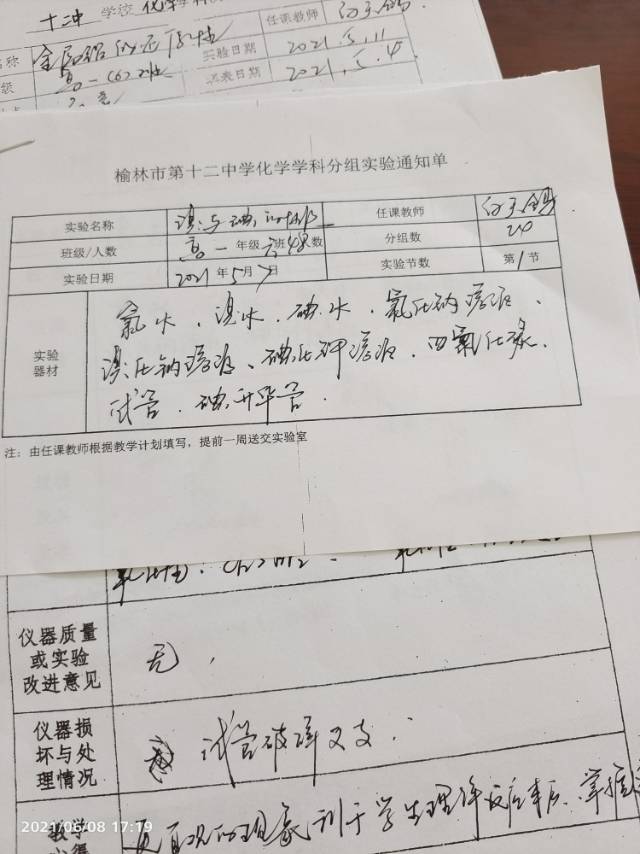 十二中 学校 化学
名称 金属铝的还原性 任课教师
级 高一(6)班 实验日期 2021.5.11
填表日期 2021.5.4
榆林市第十二中学化学学科分组实验通知单
实验名称 溴与碘的性质 任课教师
班级/人数 高一年级六班48人数 分组数 24
实验日期 2021年5月7日 实验节数 第1节
实验器材 氯水、溴水、碘水、氯化钠溶液、
溴化钠溶液、碘化钾溶液、四氯化碳、
试管、碘升华管.
注：由任课教师根据教学计划填写，提前一周送交实验室
仪器质量
或实验
改进意见
无.
仪器损
坏与处
理情况
试管破碎又支.
教学
心得
更直观的现象利于学生理解反应事后、掌握
2021/06/08 17:19